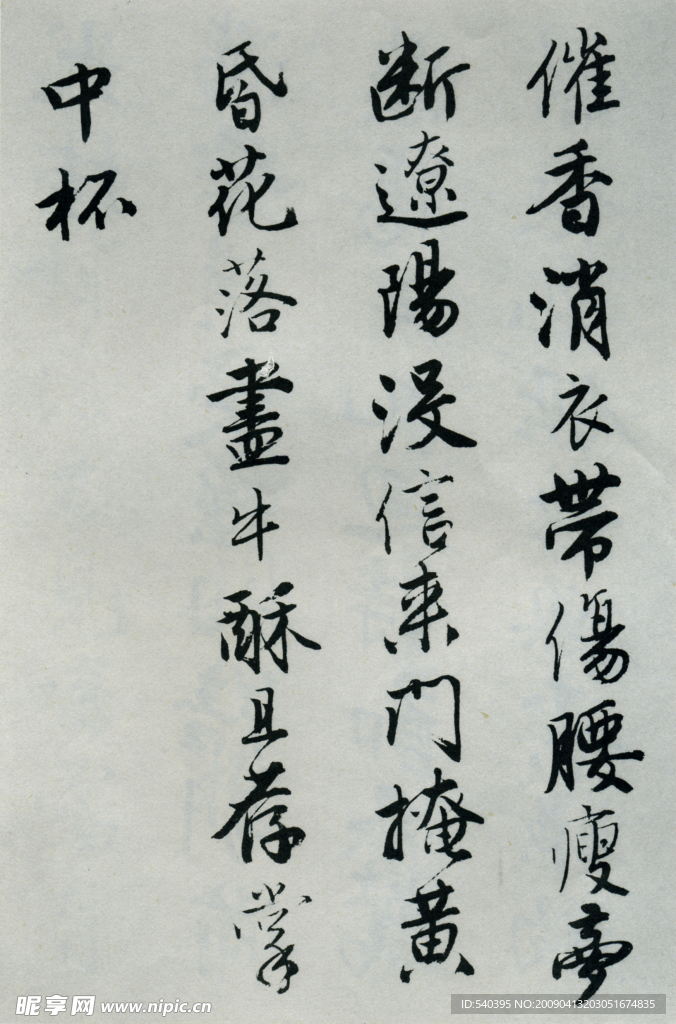 催香消衣帶傷腰瘦夢
断遼陽沒信来門掩黄
昏花落盡牛酥且荐掌
中杯
昵享网 www.nipic.cn
ID:540395 NO:20090413203051674835